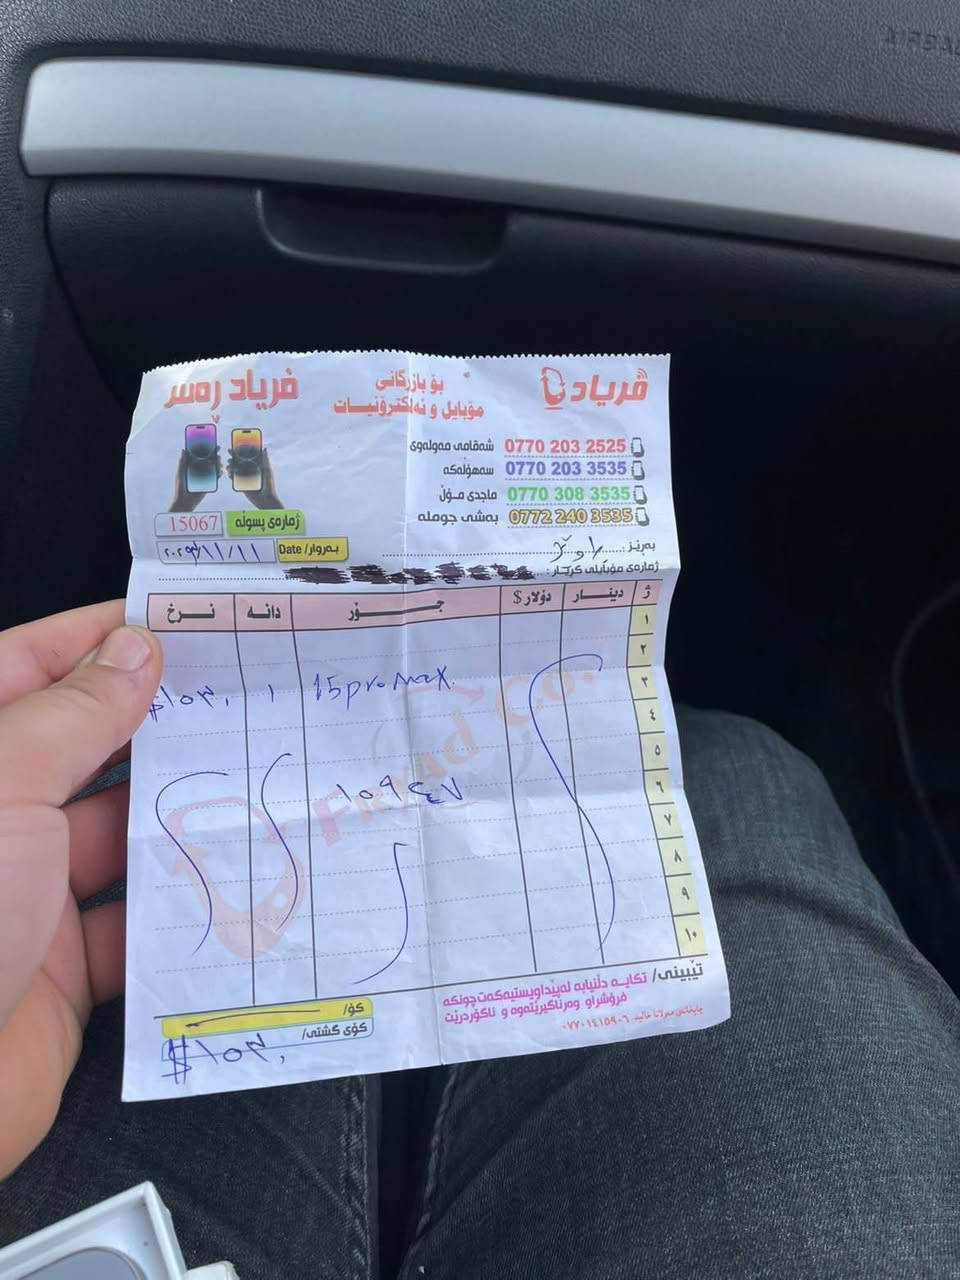 AIRBAG
فریاد
بۆ بازرگانی
مۆبایل و ئەلکترۆنیات
فریاد ڕەس
شەقامی مەولەوی 0770 203 2525
سەهۆڵەکە 0770 203 3535
ماجدی مۆڵ 0770 308 3535
بەشی جوملە 0772 240 3535
ژمارەی پسوڵە 15067
بەروار/ Date ٢٠٢٣/١١/١١
بەڕێز:
ژمارەی مۆبایلی کڕیار:
ژ دینار دۆلار $ جۆر دانە نرخ
١
٢
٣ 15 pro max ١ $١٥٣٠
٤
٥
٦ ١٠٩٤٧
٧
٨
٩
١٠
FRYAD Co.
تێبینی/ تکایە دڵنیابە لەپێداویستیەکەت چونکە
فرۆشراو وەرناگیرێتەوە و ناگۆڕدرێت
٠٧٧٠١٤١٥٩٠٦
کۆ/
کۆی گشتی/
$١٥٣٠